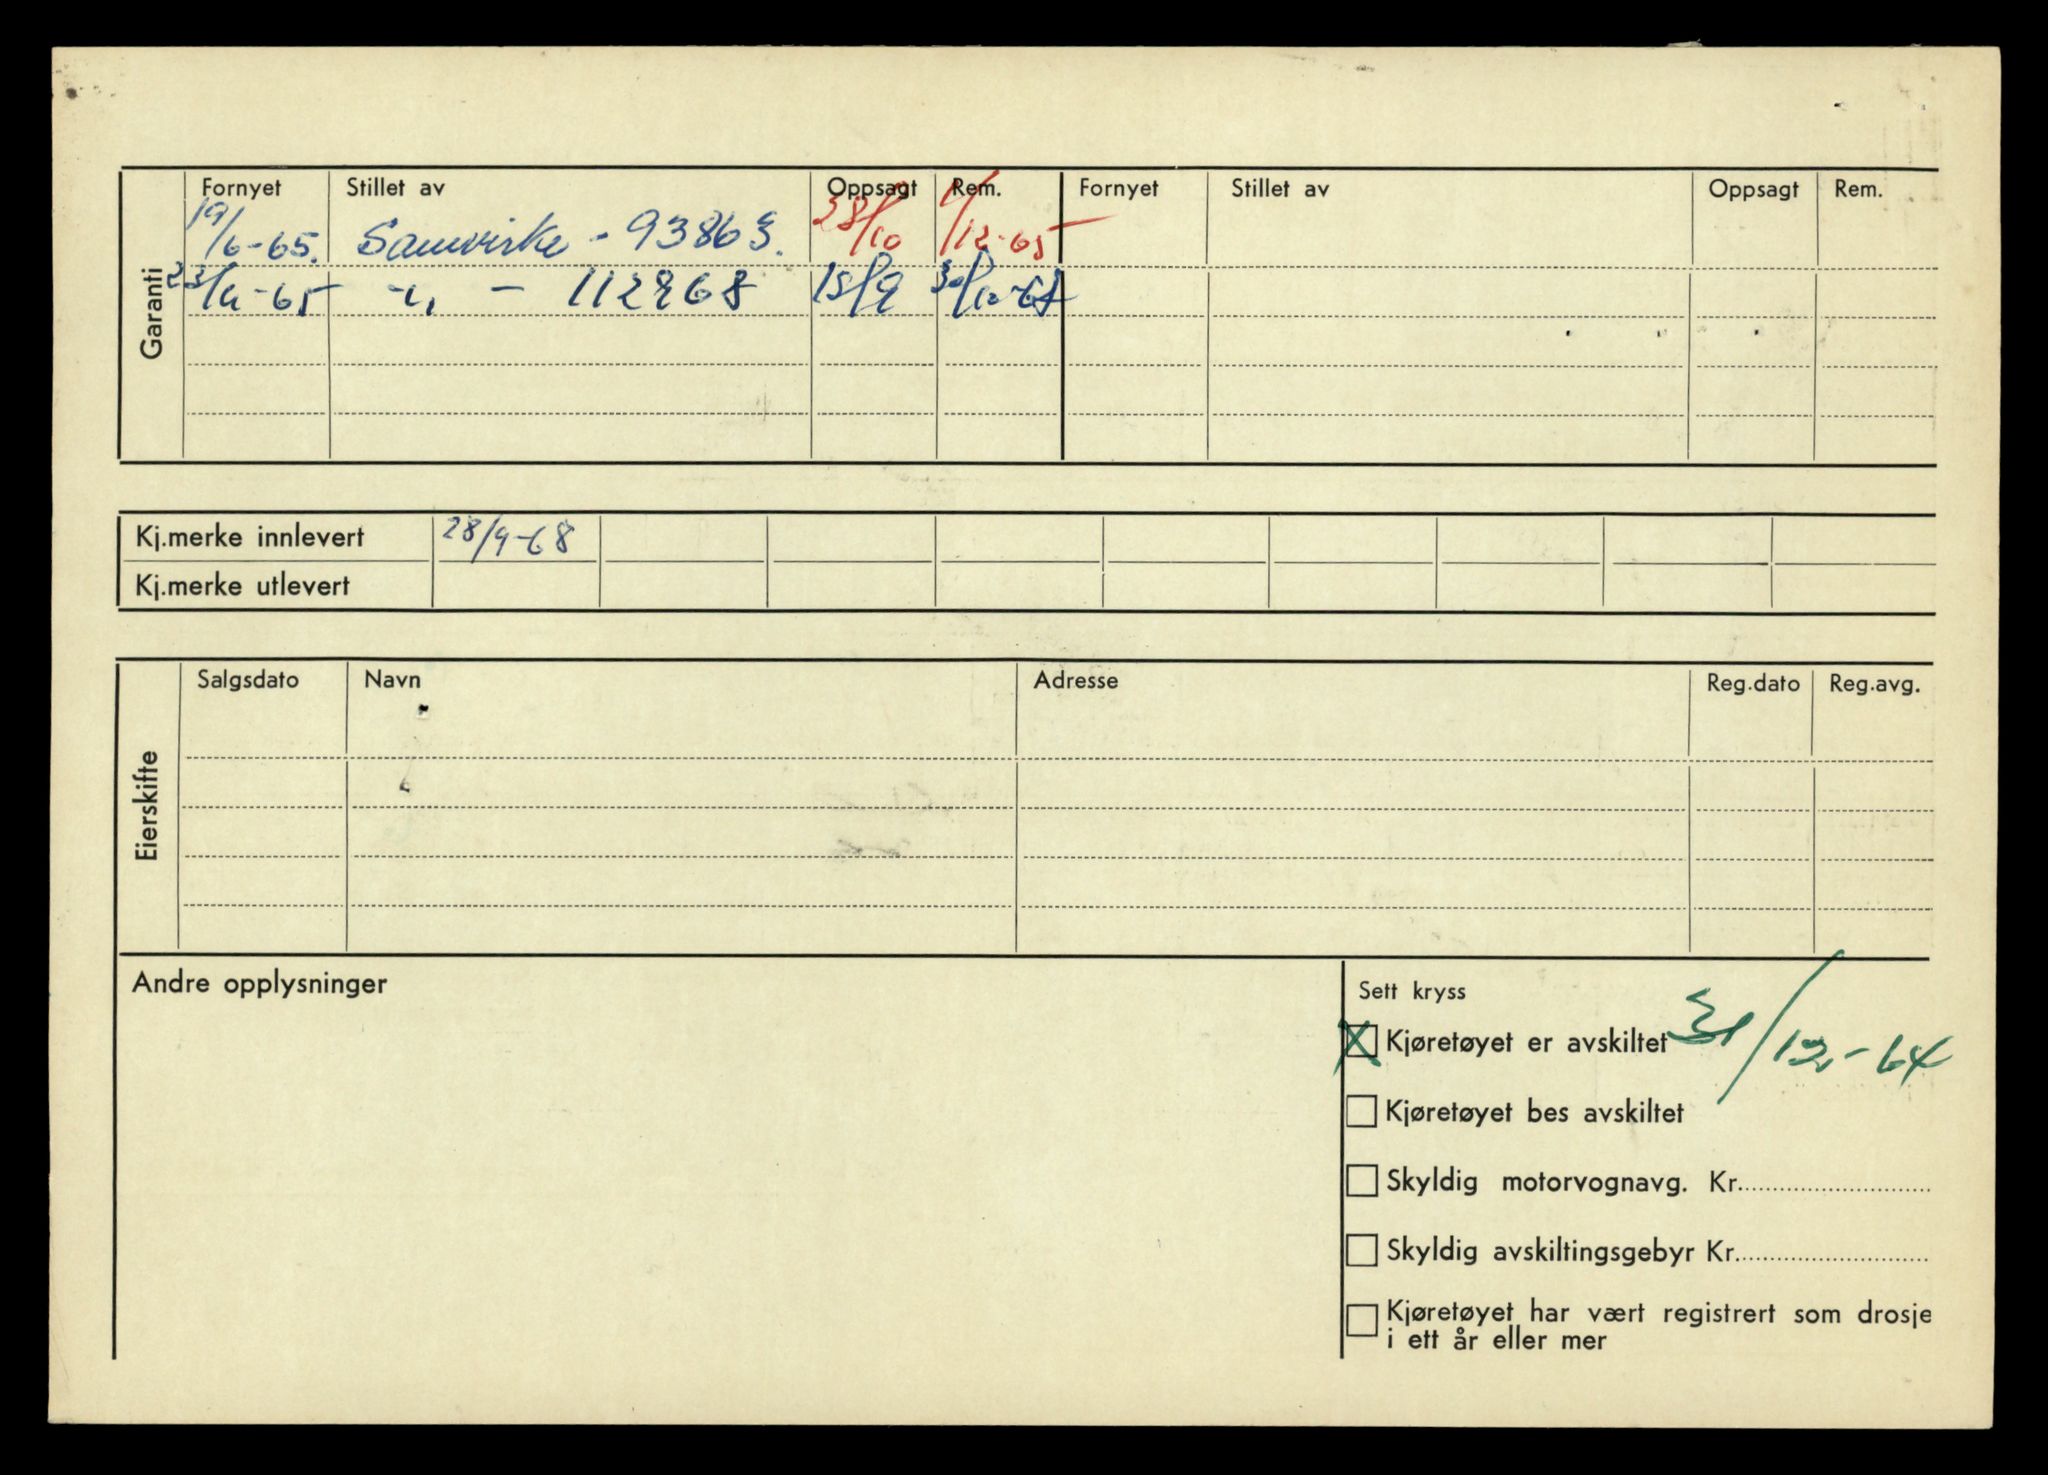 Garanti
Fornyet Stillet av Oppsagt Rem. Fornyet Stillet av Oppsagt Rem.
19/6-65. Samvirke - 93863. 28/10 1/12-65
23/ -65 -"- 112968 15/9 30/10-68
Kj.merke innlevert 28/9-68
Kj.merke utlevert
Eierskifte
Salgsdato Navn Adresse Reg.dato Reg.avg.
Andre opplysninger
Sett kryss
X Kjøretøyet er avskiltet 31/12-64
Kjøretøyet bes avskiltet
Skyldig motorvognavg. Kr..........................
Skyldig avskiltingsgebyr Kr..........................
Kjøretøyet har vært registrert som drosje
i ett år eller mer